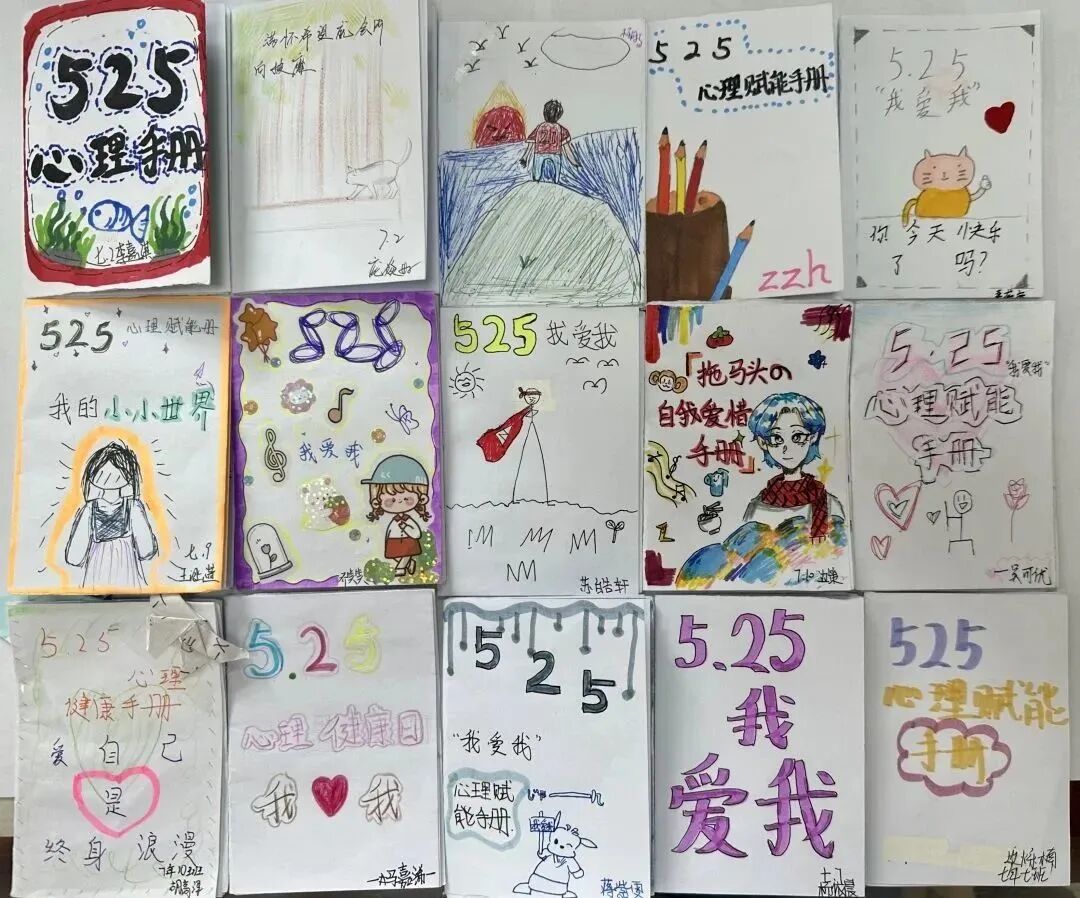 525
心理手册
七.2李嘉淇
满怀希望就会所
向披靡
7.2
525
心理赋能手册
zzh
5.25
"我爱我"
你今天快乐
了吗?
525 心理赋能册
我的小小世界
七.9
525
我爱我
525 我爱我
苏皓轩
「拖马头の
自我爱惜
手册」
7.10
5.25
"我爱我"
心理赋能
手册
一吴可优
5.25
心理
健康手册
爱自己
是
终身浪漫
5.25
心理健康日
我 我
525
"我爱我"
心理赋
能手册
5.25
我
爱我
525
心理赋能
手册
七年七班